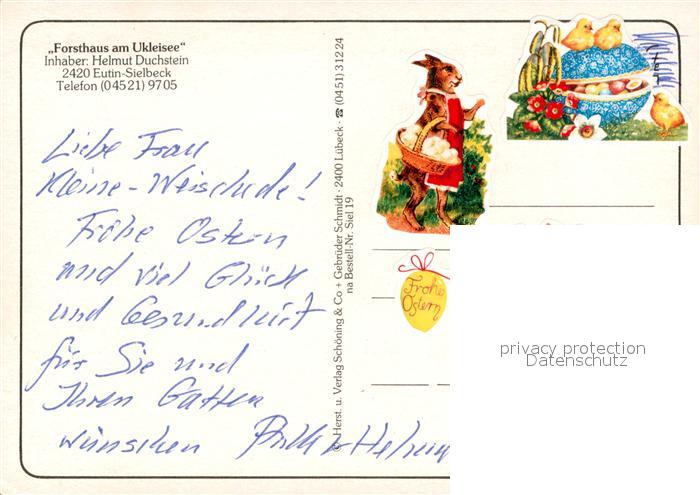 „Forsthaus am Ukleisee“
Inhaber: Helmut Duchstein
2420 Eutin-Sielbeck
Telefon (0 45 21) 97 05
Liebe Frau
Kleine-Weischede!
Frohe Ostern
und viel Glück
und Gesundheit
für Sie und
Ihren Gatten
wünschen
© Herst. u. Verlag Schöning & Co + Gebrüder Schmidt · 2400 Lübeck · ☎ (04 51) 3 12 24
na Bestell-Nr. Siel 19
Frohe
Ostern
privacy protection
Datenschutz